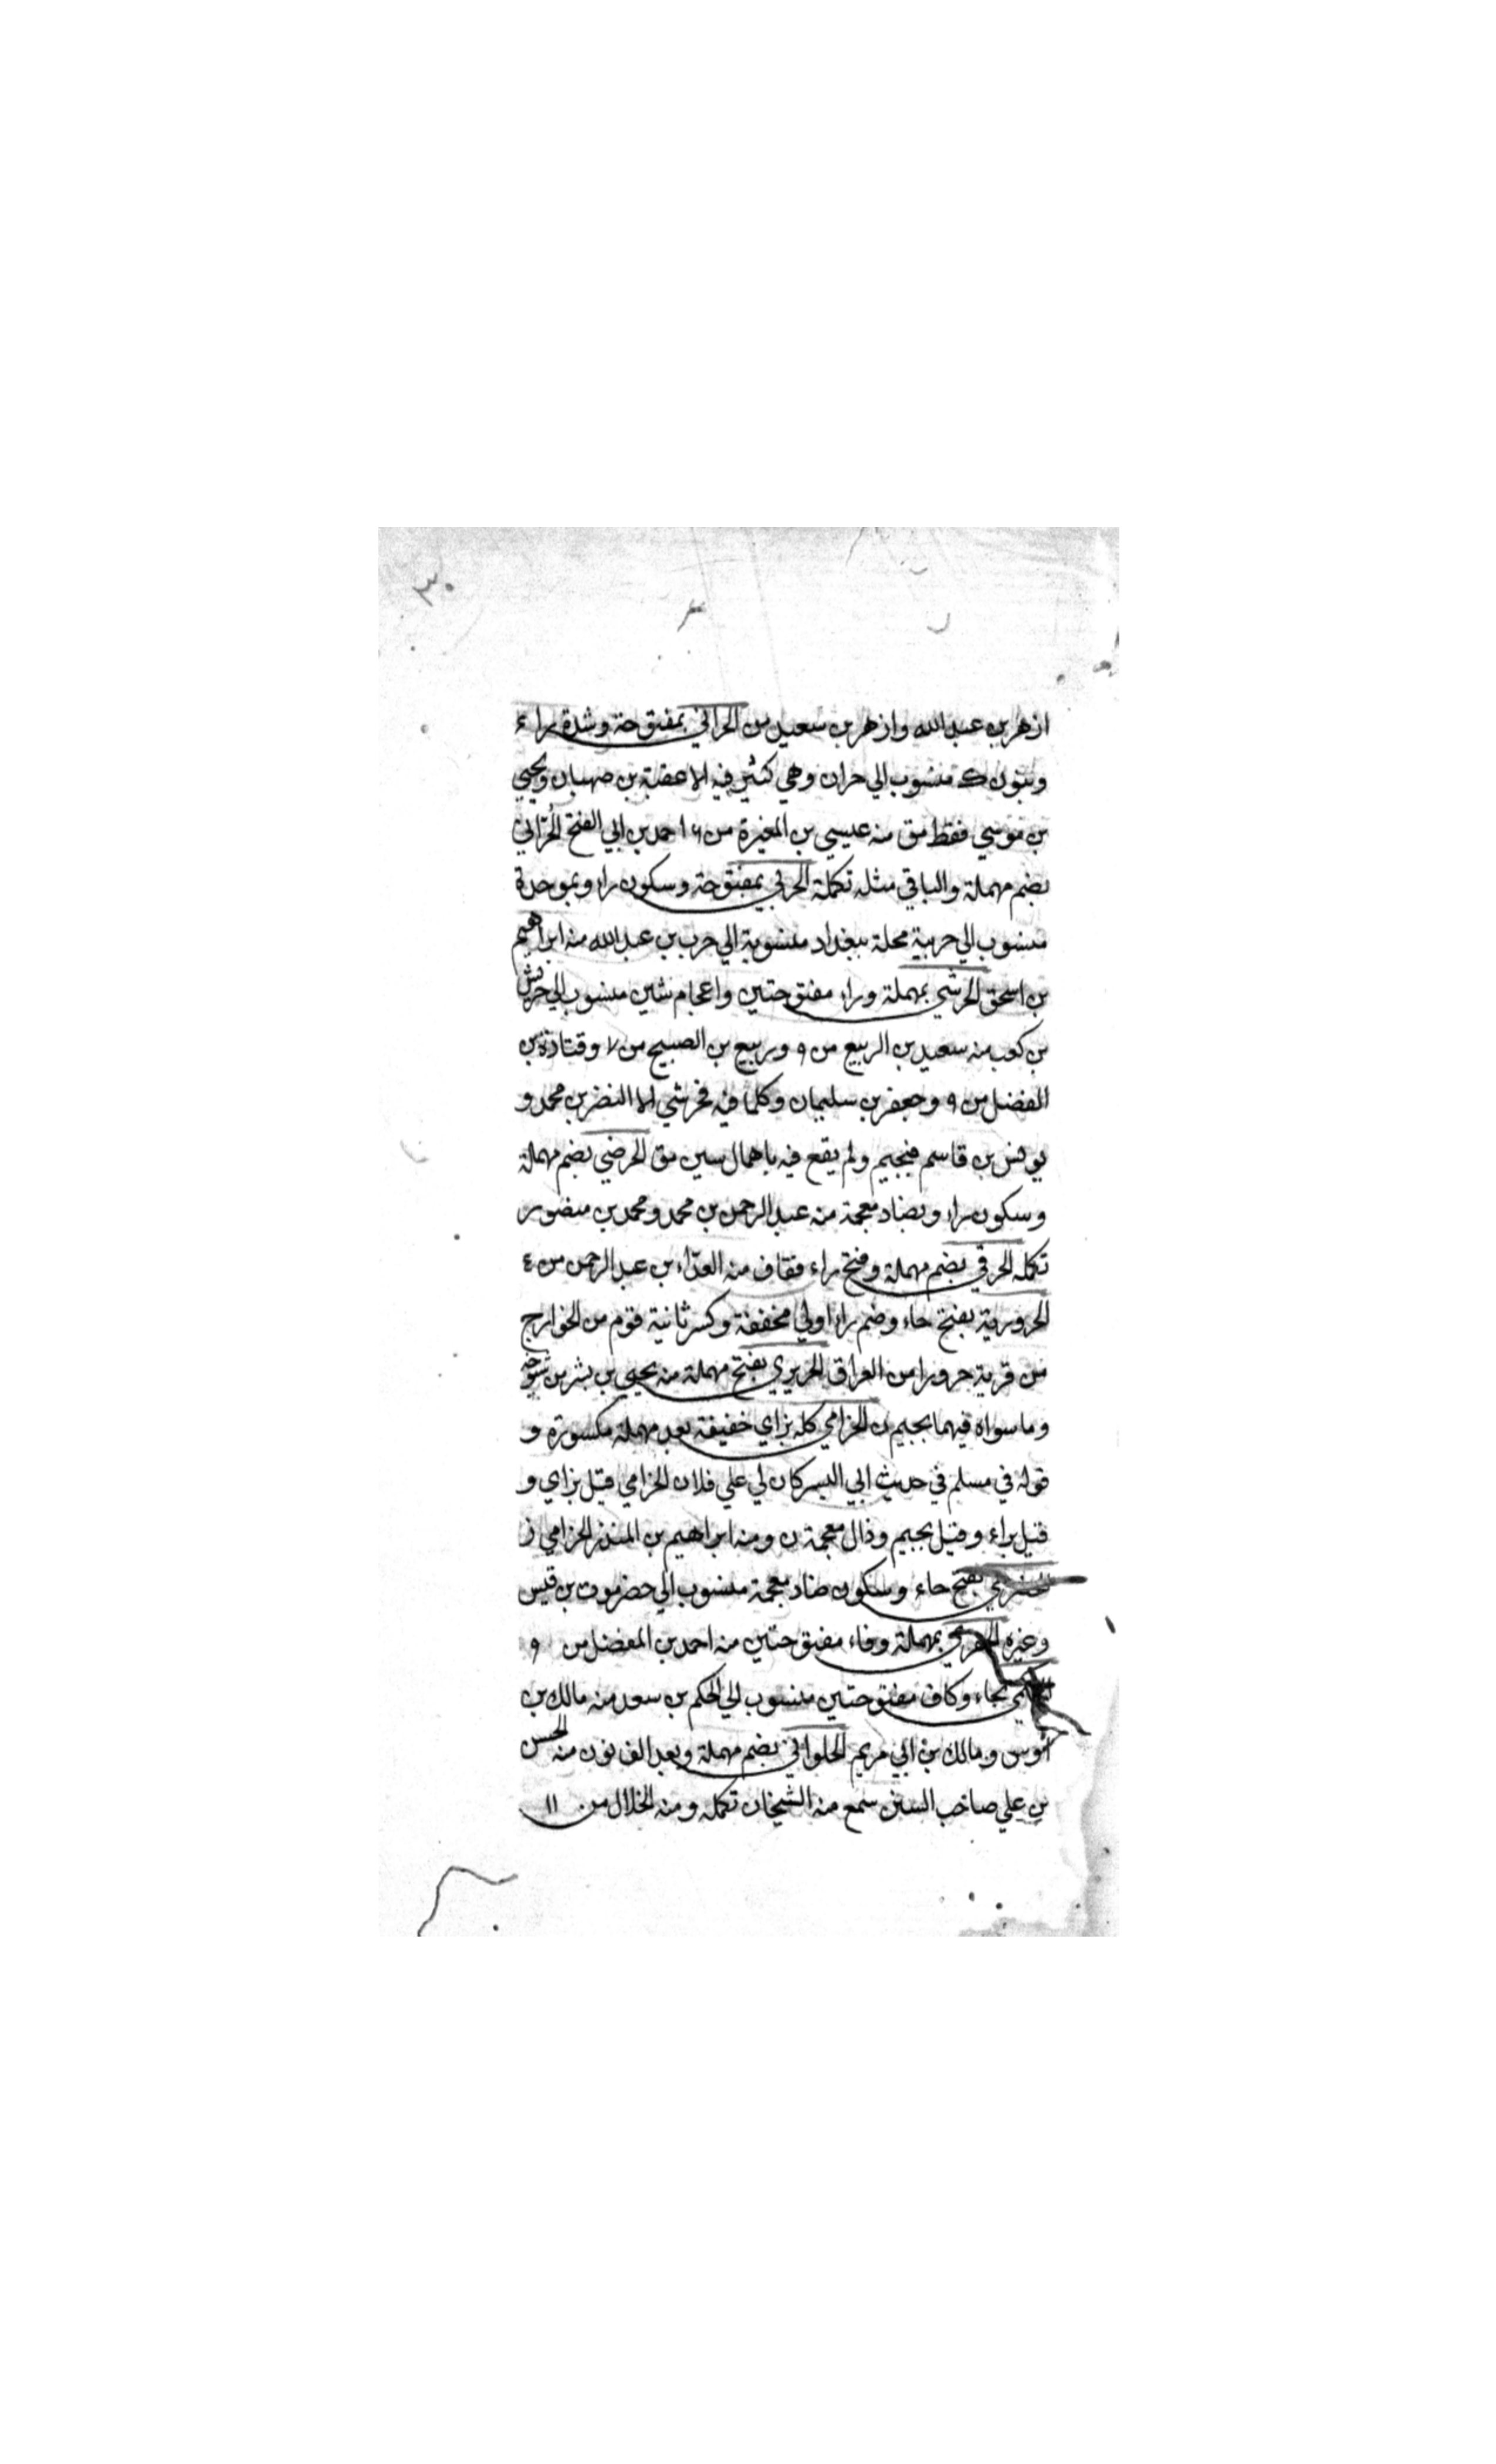 ٣٠
ازهر بن عبد الله وازهر بن سعيد من الحراني بمفتوحة وشدة راء
وبنون ك منسوب الي حران وهي كثير فيه الا عقبة بن صهبان ويحيي
بن موسي فقط مق منه عيسي بن المغيرة من ٦ احمد بن ابي الفتح الحُراني
بضم مهملة والباقي مثله تكملة الحربي بمفتوحة وسكون راء وبموحدة
منسوب الي حربية محلة ببغداد منسوبة الي حرب بن عبد الله منه ابراهيم
بن اسحق الحرشي بمهملة وراء مفتوحتين واعجام شين منسوب الي حريش
بن كعب منه سعيد بن الربيع من ٩ وربيع بن الصبيح من ٧ وقتادة بن
الفضل من ٩ وجعفر بن سليمان وكلما فيه فحرشي الا النضر بن محمد و
يونس بن قاسم فبجيم ولم يقع فيه باهمال سين مق الحرضي بضم مهملة
وسكون راء وبضاد معجمة منه عبد الرحمن بن محمد ومحمد بن منصور
تكمله الحرقي بضم مهملة وفتح راء فقاف منه العلاء بن عبد الرحمن من ٤
الحرورية بفتح حاء وضم راء اولي مخففة وكسر ثانية قوم من الخوارج
من قرية حرورا من العراق الحريري بفتح مهملة منه يحيي بن بشر بن شيوخه
وما سواه فيهما بجيم ن الحزامي كله بزاي خفيفة بعد مهملة مكسورة و
قوله في مسلم في حديث ابي اليسر كان لي علي فلان الحزامي قيل بزاي و
قيل براء وقيل بجيم وذال معجمة ن ومنه ابراهيم بن المنذر الحزامي ز
الحضرمي بفتح حاء وسكون ضاد معجمة منسوب الي حضرموت بن قيس
وغيره الحفري بمهملة وفاء مفتوحتين منه احمد بن المفضل من ٩
الحكمي بحاء وكاف مفتوحتين منسوب الي الحكم بن سعد منه مالك بن
انوس ومالك بن ابي مريم الحلواني بضم مهملة وبعد الف نون منه الحسن
بن علي صاحب السنن سمع منه الشيخان تكمله ومنه الخلال من ١١